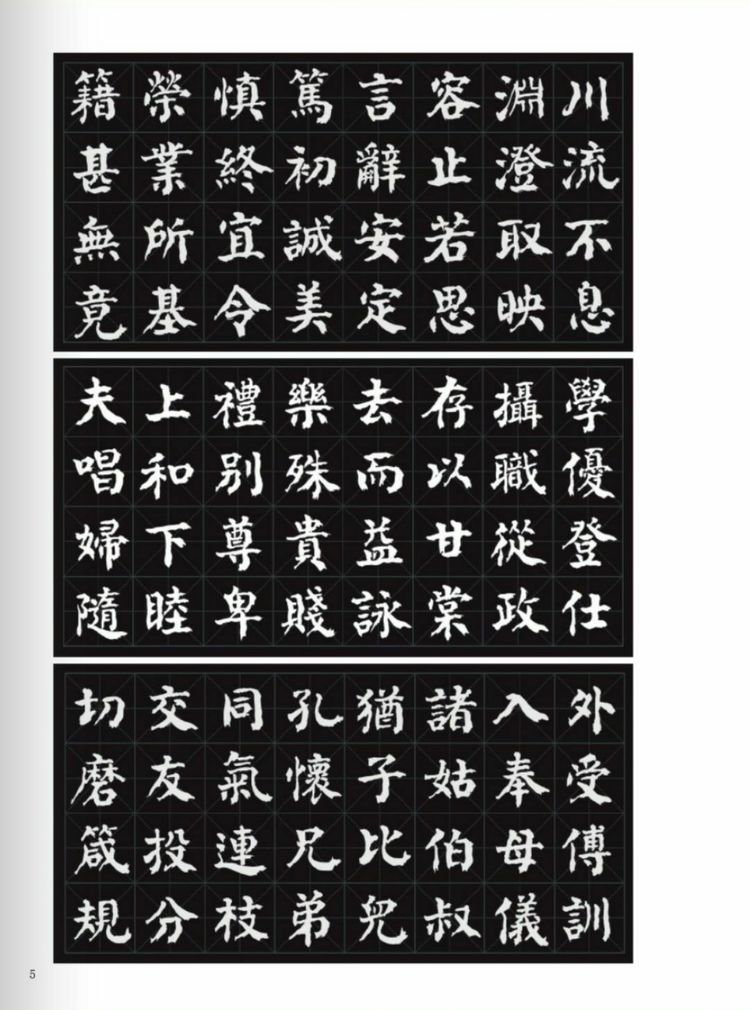 川流不息
淵澄取映
容止若思
言辭安定
篤初誠美
慎終宜令
榮業所基
籍甚無竟
學優登仕
攝職從政
存以甘棠
去而益詠
樂殊貴賤
禮別尊卑
上和下睦
夫唱婦隨
外受傅訓
入奉母儀
諸姑伯叔
猶子比兒
孔懷兄弟
同氣連枝
交友投分
切磨箴規
5